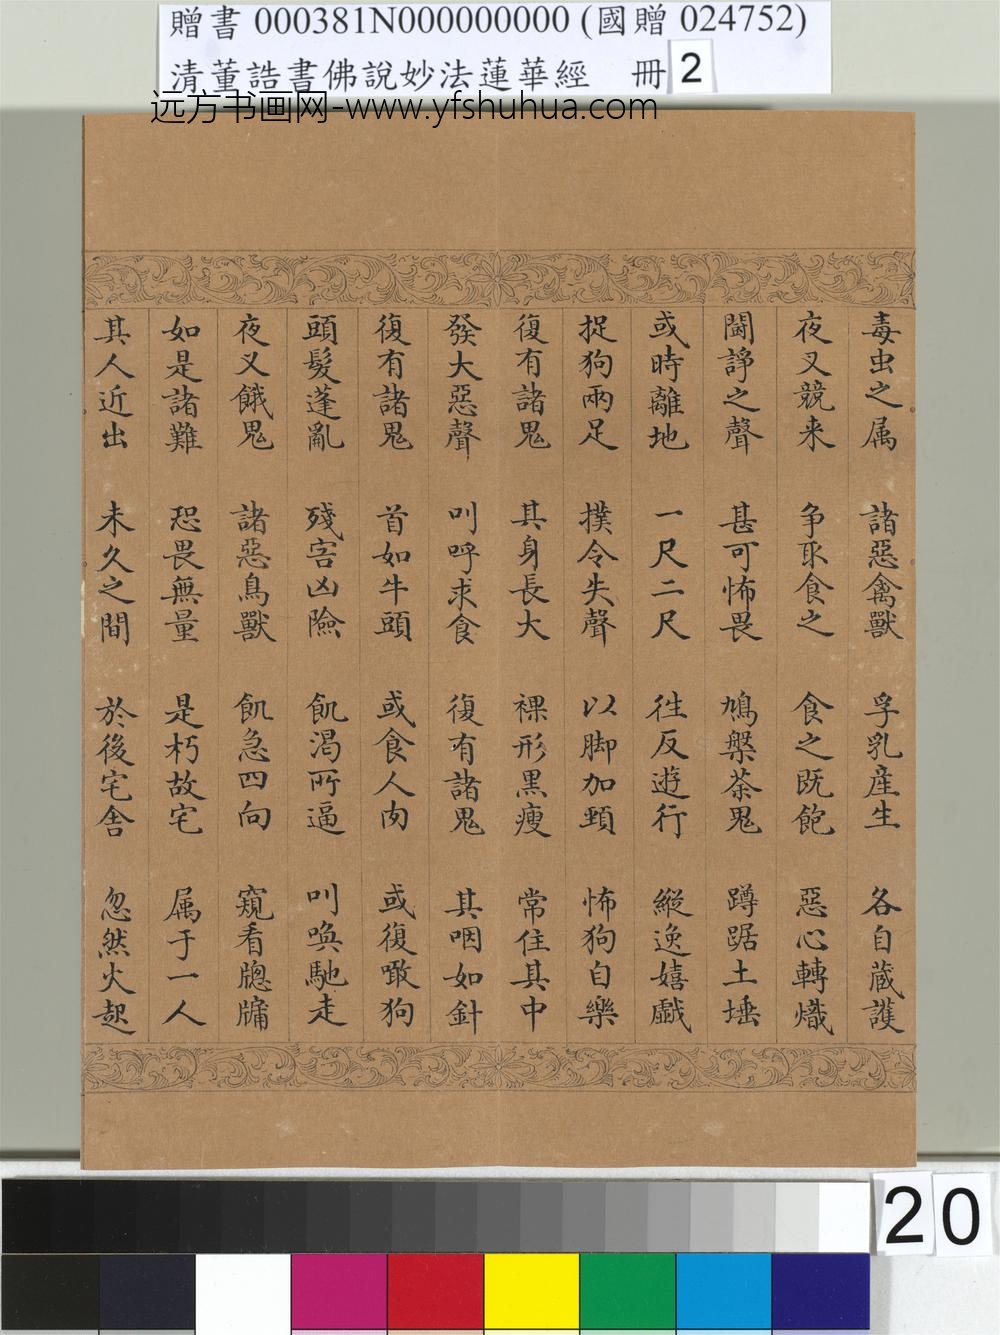 贈書 000381N000000000 (國贈 024752)
清董誥書佛說妙法蓮華經 冊 2
远方书画网-www.yfshuhua.com
毒虫之属 諸惡禽獸 孚乳産生 各自蔵護
夜叉競来 争取食之 食之既飽 惡心轉熾
鬪諍之聲 甚可怖畏 鳩槃茶鬼 蹲踞土埵
或時離地 一尺二尺 往反遊行 縱逸嬉戯
捉狗兩足 撲令失聲 以脚加頸 怖狗自樂
復有諸鬼 其身長大 裸形黒瘦 常住其中
發大惡聲 叫呼求食 復有諸鬼 其咽如針
復有諸鬼 首如牛頭 或食人肉 或復噉狗
頭髮蓬亂 殘害凶險 飢渴所逼 叫喚馳走
夜叉餓鬼 諸惡鳥獸 飢急四向 窺看牕牖
如是諸難 恐畏無量 是朽故宅 属于一人
其人近出 未久之間 於後宅舎 忽然火起
20